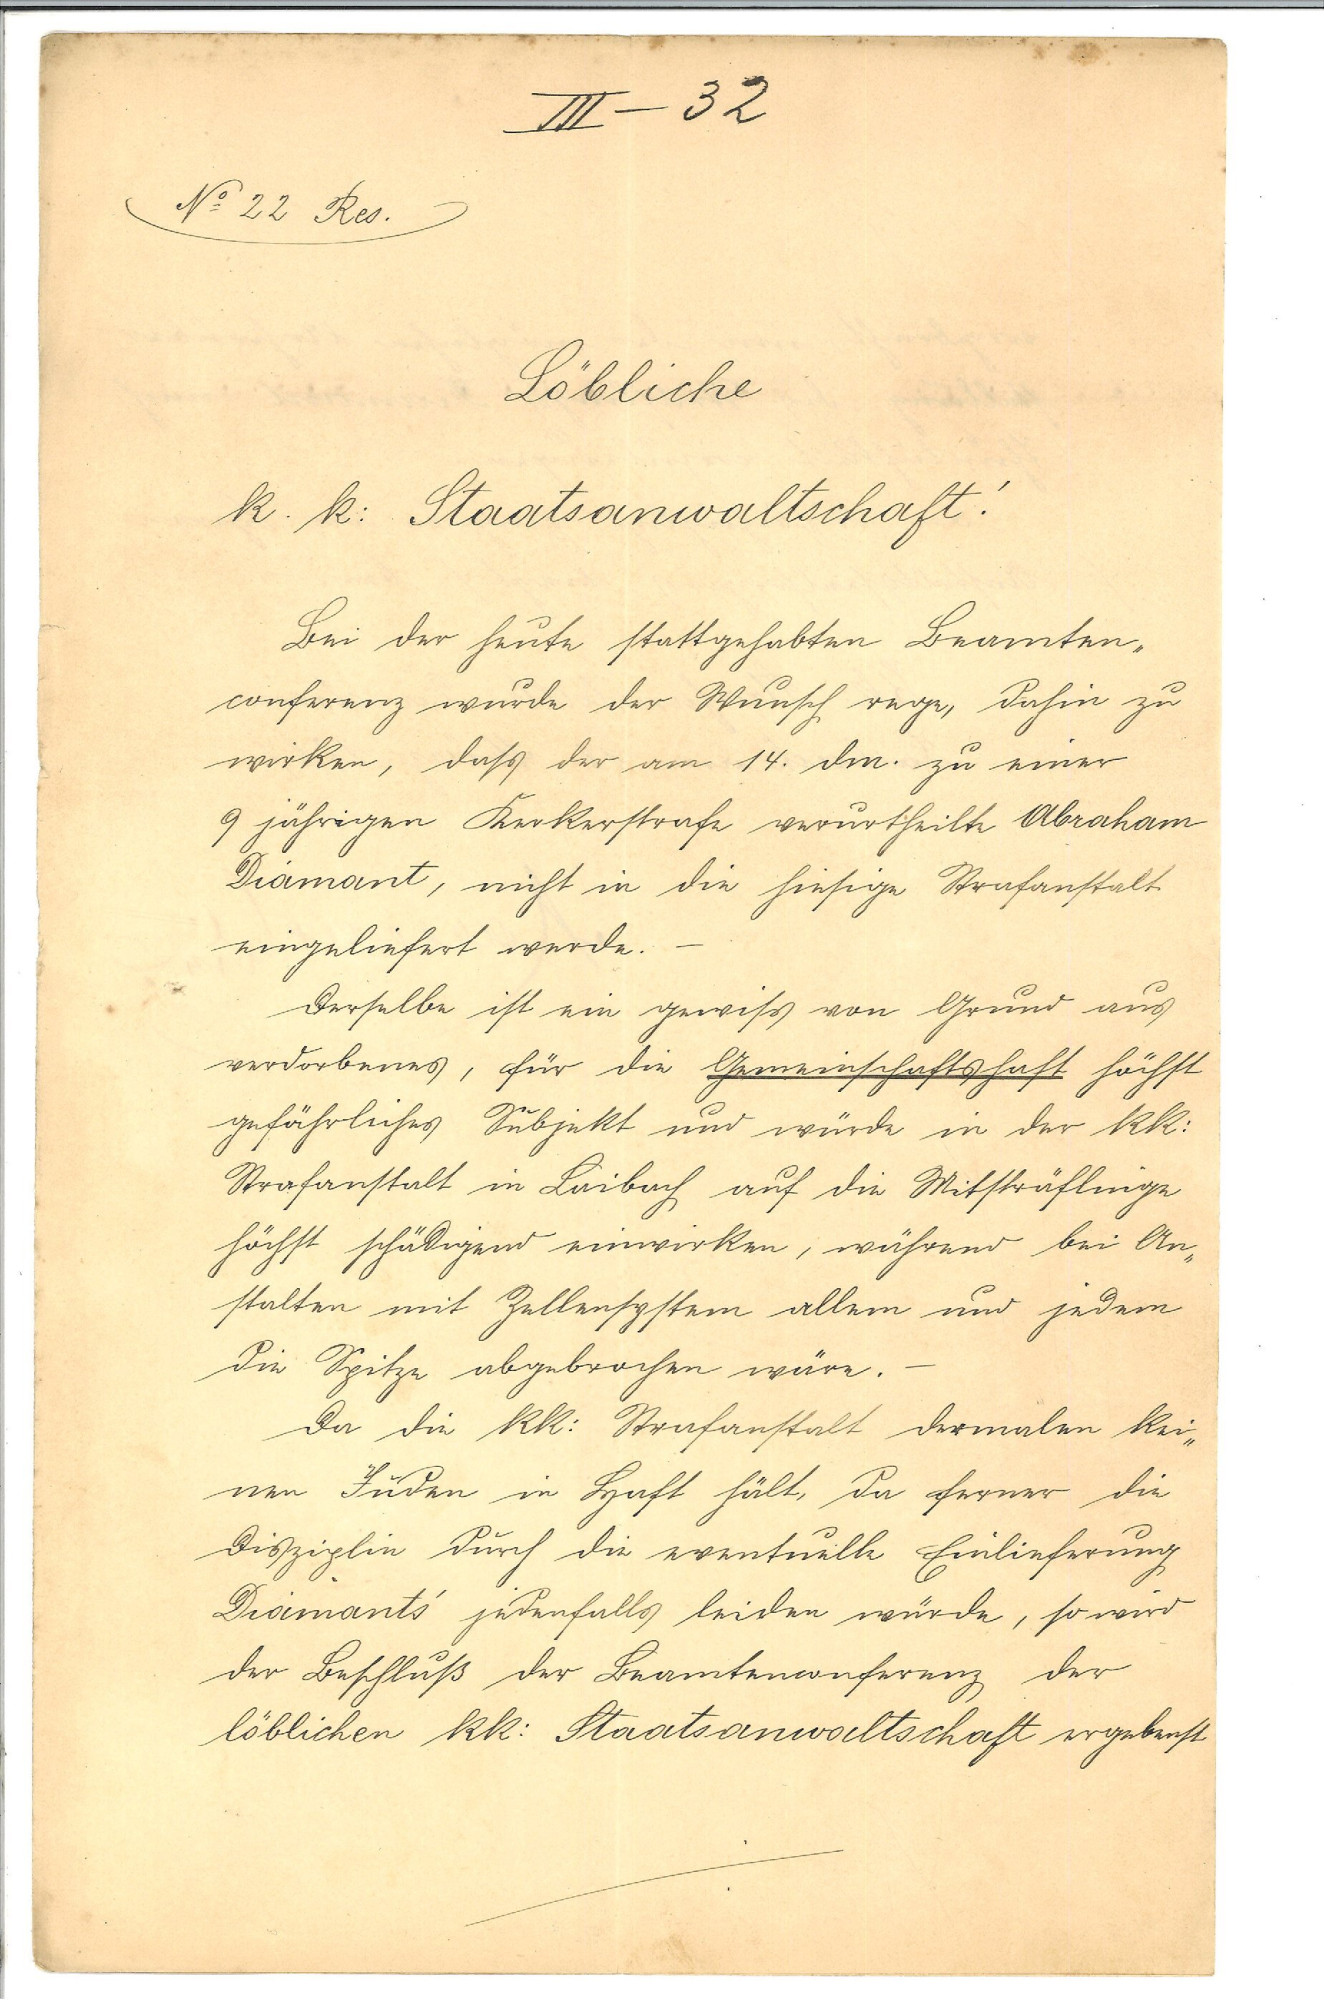 III – 32
No 22 Res.
Löbliche
k. k: Staatsanwaltschaft!
Bei der heute stattgehabten Beamten„
conferenz wurde der Wunsch rege, dahin zu
wirken, dass der am 14. dm. zu einer
9 jährigen Kerkerstrafe verurtheilte Abraham
Diamant, nicht in die hiesige Strafanstalt
eingeliefert werde. –
Derselbe ist ein gewiss von Grund aus
verdorbenes, für die Gemeinschaftshaft höchst
gefährliches Subjekt und würde in der kk:
Strafanstalt in Laibach auf die Mitsträflinge
höchst schädigend einwirken, während bei An„
stalten mit Zellensystem allem und jedem
die Spitze abgebrochen wäre. –
Da die kk: Strafanstalt dermalen kei„
nen Juden in Haft hält, da ferner die
Disziplin durch die eventuelle Einlieferung
Diamants' jedenfalls leiden würde, so wird
der Beschluß der Beamtenconferenz der
löblichen kk: Staatsanwaltschaft ergebenst